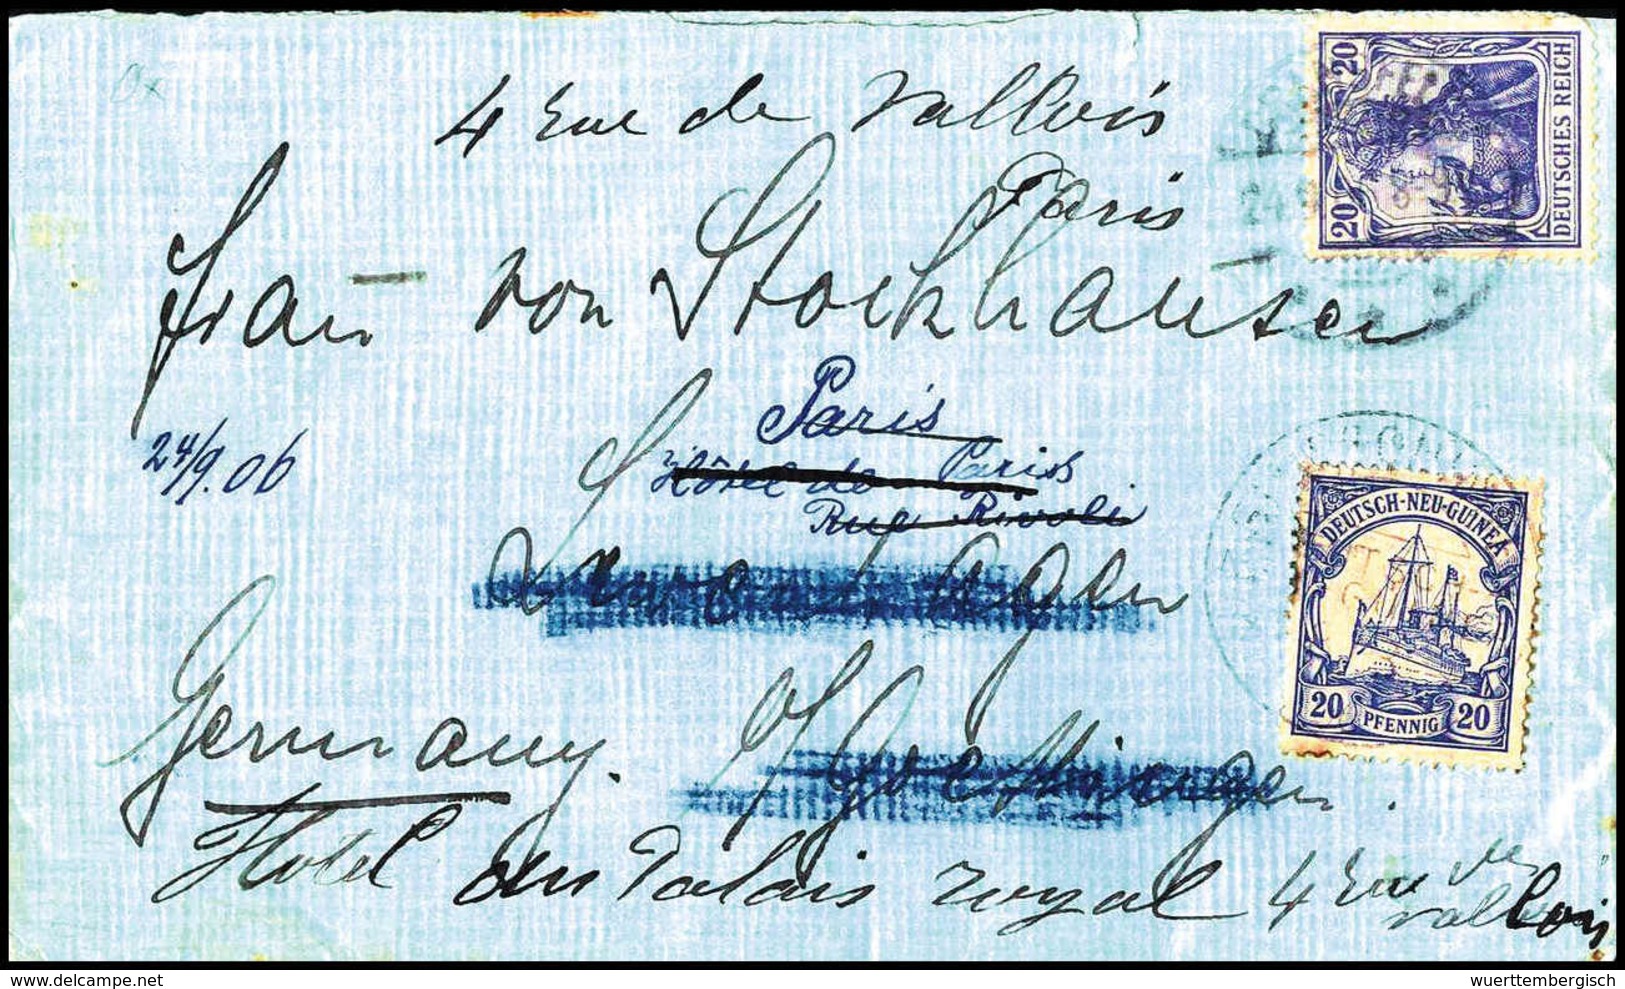 4 Rue de Vallois
Paris
Frau von Stockhausen
Paris
24/9. 06
Hôtel de Paris
Rue Rivoli
Germany.
Hotel du Palais royal 4 Rue de
Vallois
20 20
DEUTSCHES REICH
DEUTSCH-NEU-GUINEA
20 PFENNIG 20
www.delcampe.net
wuerttembergisch